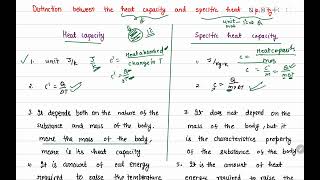 Distinction between the heat capacity and specific heat
unit mass
Heat capacity
Specific heat capacity
1. unit J/k
c' = Heat absorbed / change in T
1. J/kg-k
c = Heat capacity / mass
2. c' = Q/ΔT
c' = Q/ΔT
2. c = Q/mΔT
3. It depends both on the nature of the
substance and mass of the body.
more the mass of the body,
more is its heat capacity
3. It does not depend on the
mass of the body, but it
is the characteristics property
of the substance of the body
4. It is amount of
energy
required to raise the temperature
4. It is the amount of heat
energy required to raise the